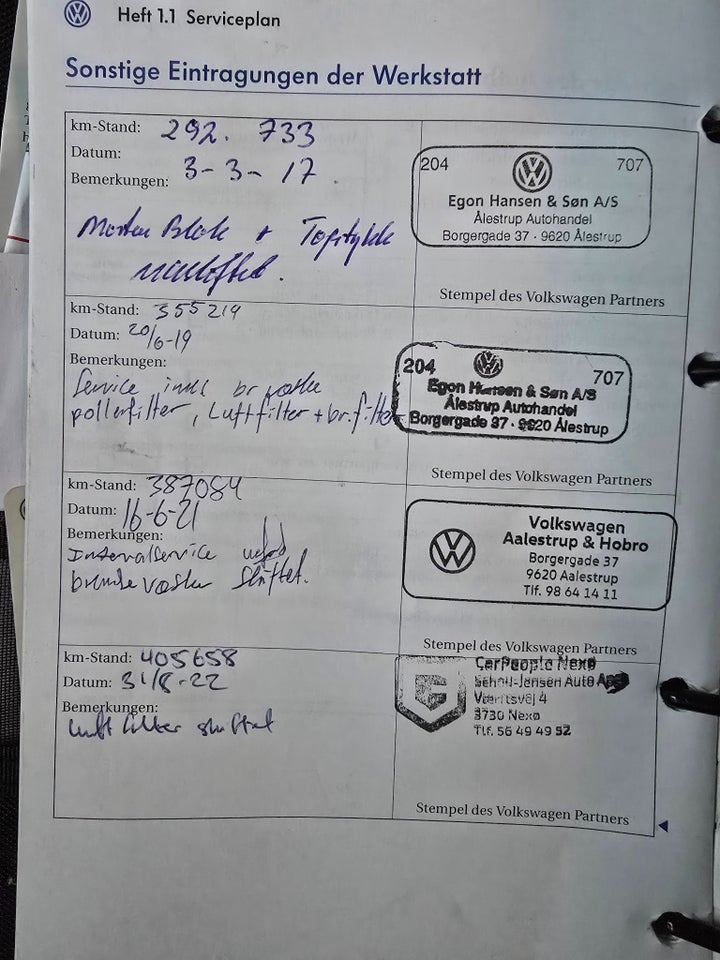 Heft 1.1 Serviceplan
Sonstige Eintragungen der Werkstatt
km-Stand: 292. 733
Datum: 3-3-17
Bemerkungen:
204 707
Egon Hansen & Søn A/S
Ålestrup Autohandel
Borgergade 37 · 9620 Ålestrup
Motor Blok + Topstykke
Stempel des Volkswagen Partners
km-Stand: 355219
Datum: 20/6-19
Bemerkungen:
Service inkl br væske
pollenfilter, Luftfilter + br.filter
204 707
Egon Hansen & Søn A/S
Ålestrup Autohandel
Borgergade 37 · 9620 Ålestrup
Stempel des Volkswagen Partners
km-Stand: 387084
Datum: 16-6-21
Bemerkungen:
Intervalservice
bremsevæske skiftet.
Volkswagen
Aalestrup & Hobro
Borgergade 37
9620 Aalestrup
Tlf. 98 64 14 11
Stempel des Volkswagen Partners
km-Stand: 405658
Datum: 31/8-22
Bemerkungen:
Luft filter skiftet
CarPeople Nexø
Auto ApS
4
3730 Nexø
Tlf. 56 49 49 52
Stempel des Volkswagen Partners